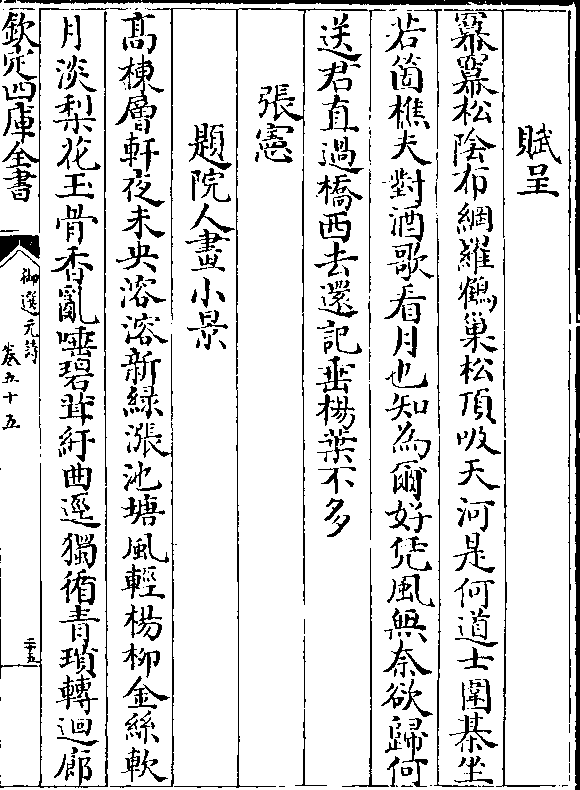 賦呈
羃羃松陰布網羅鶴巢松頂吸天河是何道士圍棊坐
若箇樵夫對酒歌看月也知為爾好凭風無奈欲歸何
送君直過橋西去還記垂楊葉不多
張憲
題院人畫小景
高棟層軒夜未央溶溶新緑漲池塘風輕楊柳金絲軟
月淡梨花玉骨香亂唾碧茸紆曲逕獨循青瑣轉迴廊
欽定四庫全書
御選元詩
卷五十五
二十五